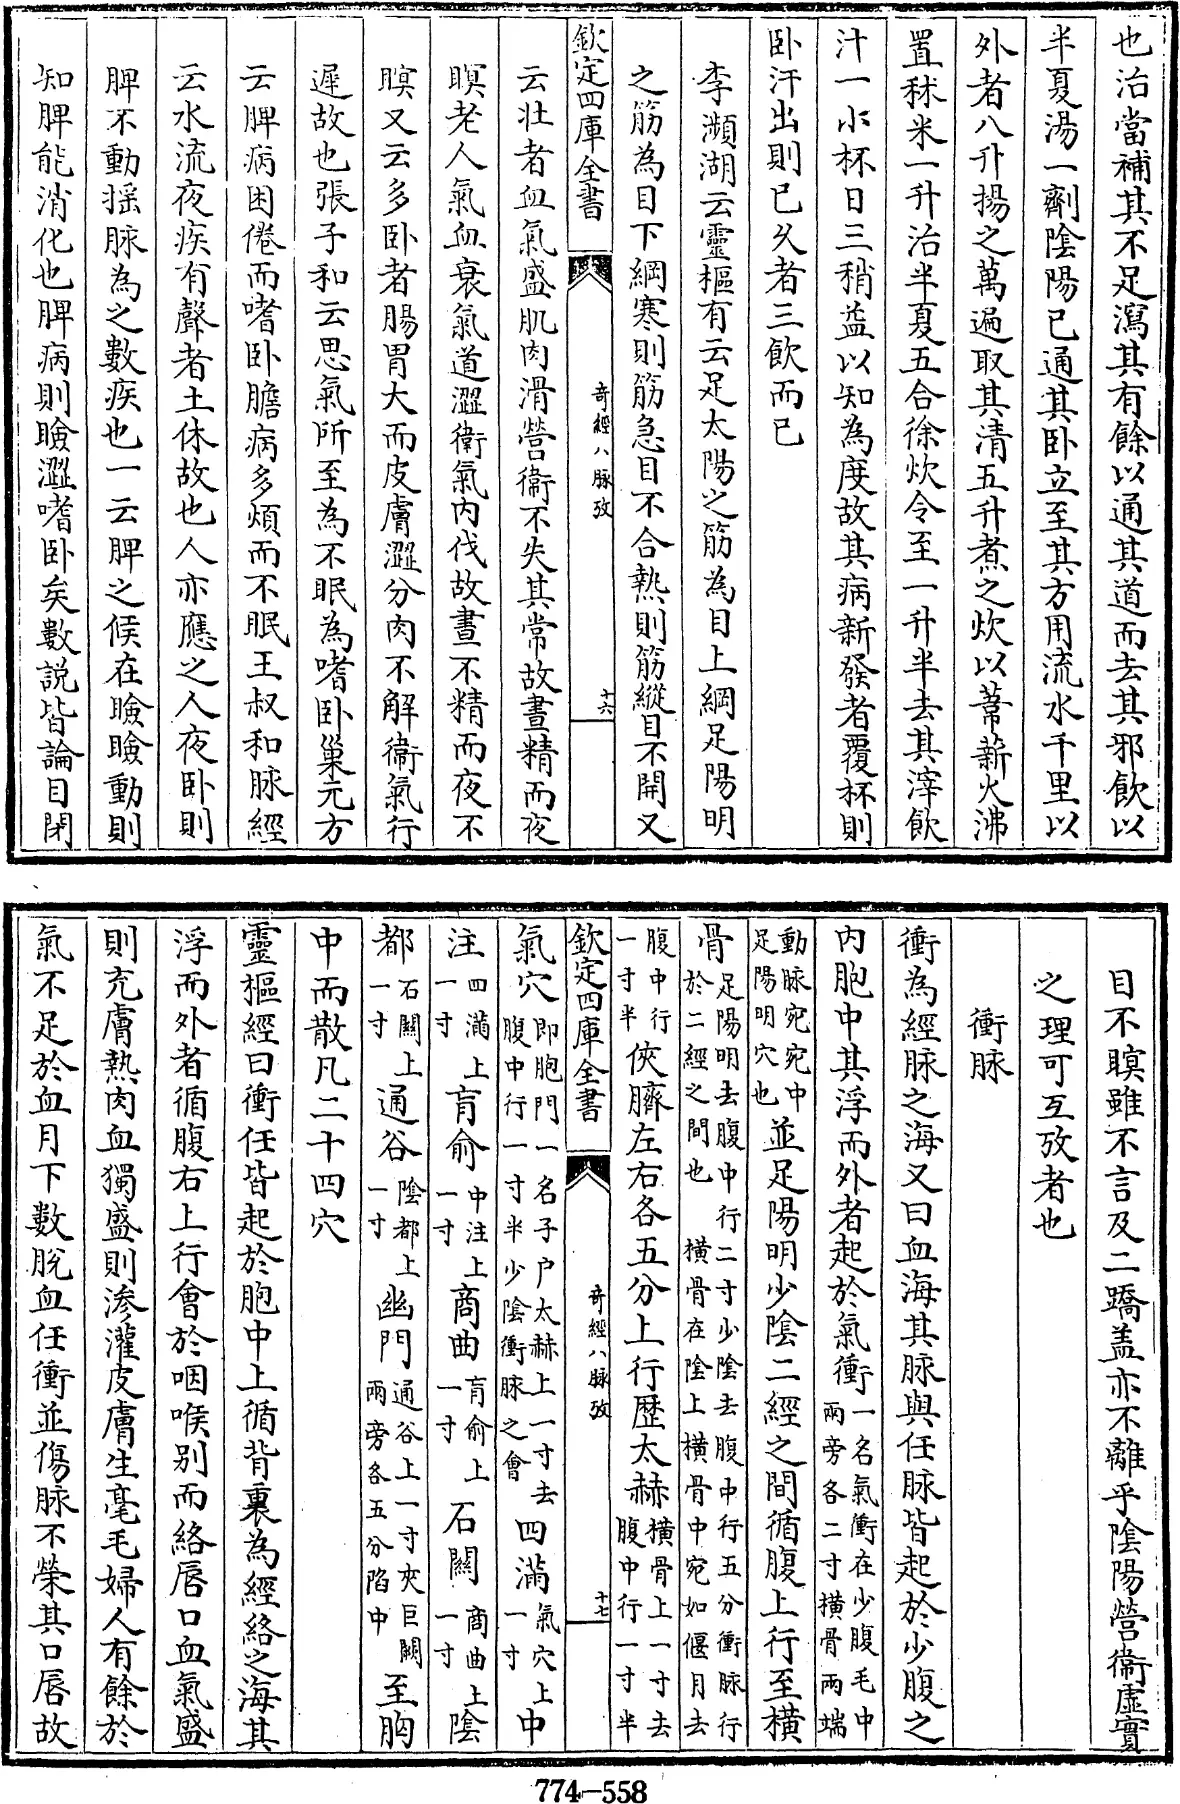 也治當補其不足瀉其有餘以通其道而去其邪飲以
半夏湯一劑陰陽已通其卧立至其方用流水千里以
外者八升揚之萬遍取其清五升煮之炊以葦薪火沸
置秫米一升治半夏五合徐炊令至一升半去其滓飲
汁一小杯日三稍益以知為度故其病新發者覆杯則
卧汗出則已久者三飲而已
李瀕湖云靈樞有云足太陽之筋為目上綱足陽明
之筋為目下綱寒則筋急目不合熱則筋縱目不開又
欽定四庫全書
奇經八脉攷
十六
云壯者血氣盛肌肉滑營衛不失其常故晝精而夜
瞑老人氣血衰氣道澀衛氣內伐故晝不精而夜不
瞑又云多卧者腸胃大而皮膚澀分肉不解衛氣行
遲故也張子和云思氣所至為不眠為嗜卧巢元方
云脾病困倦而嗜卧膽病多煩而不眠王叔和脉經
云水流夜疾有聲者土休故也人亦應之人夜卧則
脾不動揺脉為之數疾也一云脾之候在瞼瞼動則
知脾能消化也脾病則瞼澀嗜卧矣數説皆論目閉
目不瞑雖不言及二蹻盖亦不離乎陰陽營衛虛實
之理可互攷者也
衝脉
衝為經脉之海又曰血海其脉與任脉皆起於少腹之
内胞中其浮而外者起於氣衝一名氣衝在少腹毛中
兩旁各二寸橫骨兩端
動脉宛宛中
足陽明穴也
並足陽明少陰二經之間循腹上行至橫
骨足陽明去腹中行二寸少陰去腹中行五分衝脉行
於二經之間也 橫骨在陰上橫骨中宛如偃月去
腹中行
一寸半
俠臍左右各五分上行歷太赫橫骨上一寸去
腹中行一寸半
欽定四庫全書
奇經八脉攷
十七
氣穴即胞門一名子户太赫上一寸去
腹中行一寸半少陰衝脉之會
四滿氣穴上
一寸
中
注四滿上
一寸
肓俞中注上
一寸
商曲肓俞上
一寸
石關商曲上
一寸
陰
都石關上
一寸
通谷陰都上
一寸
幽門通谷上一寸夾巨闕
兩旁各五分陷中
至胸
中而散凡二十四穴
靈樞經曰衝任皆起於胞中上循背裏為經絡之海其
浮而外者循腹右上行會於咽喉别而絡唇口血氣盛
則充膚熱肉血獨盛則滲灌皮膚生毫毛婦人有餘於
氣不足於血月下數脫血任衝並傷脉不榮其口唇故
774-558